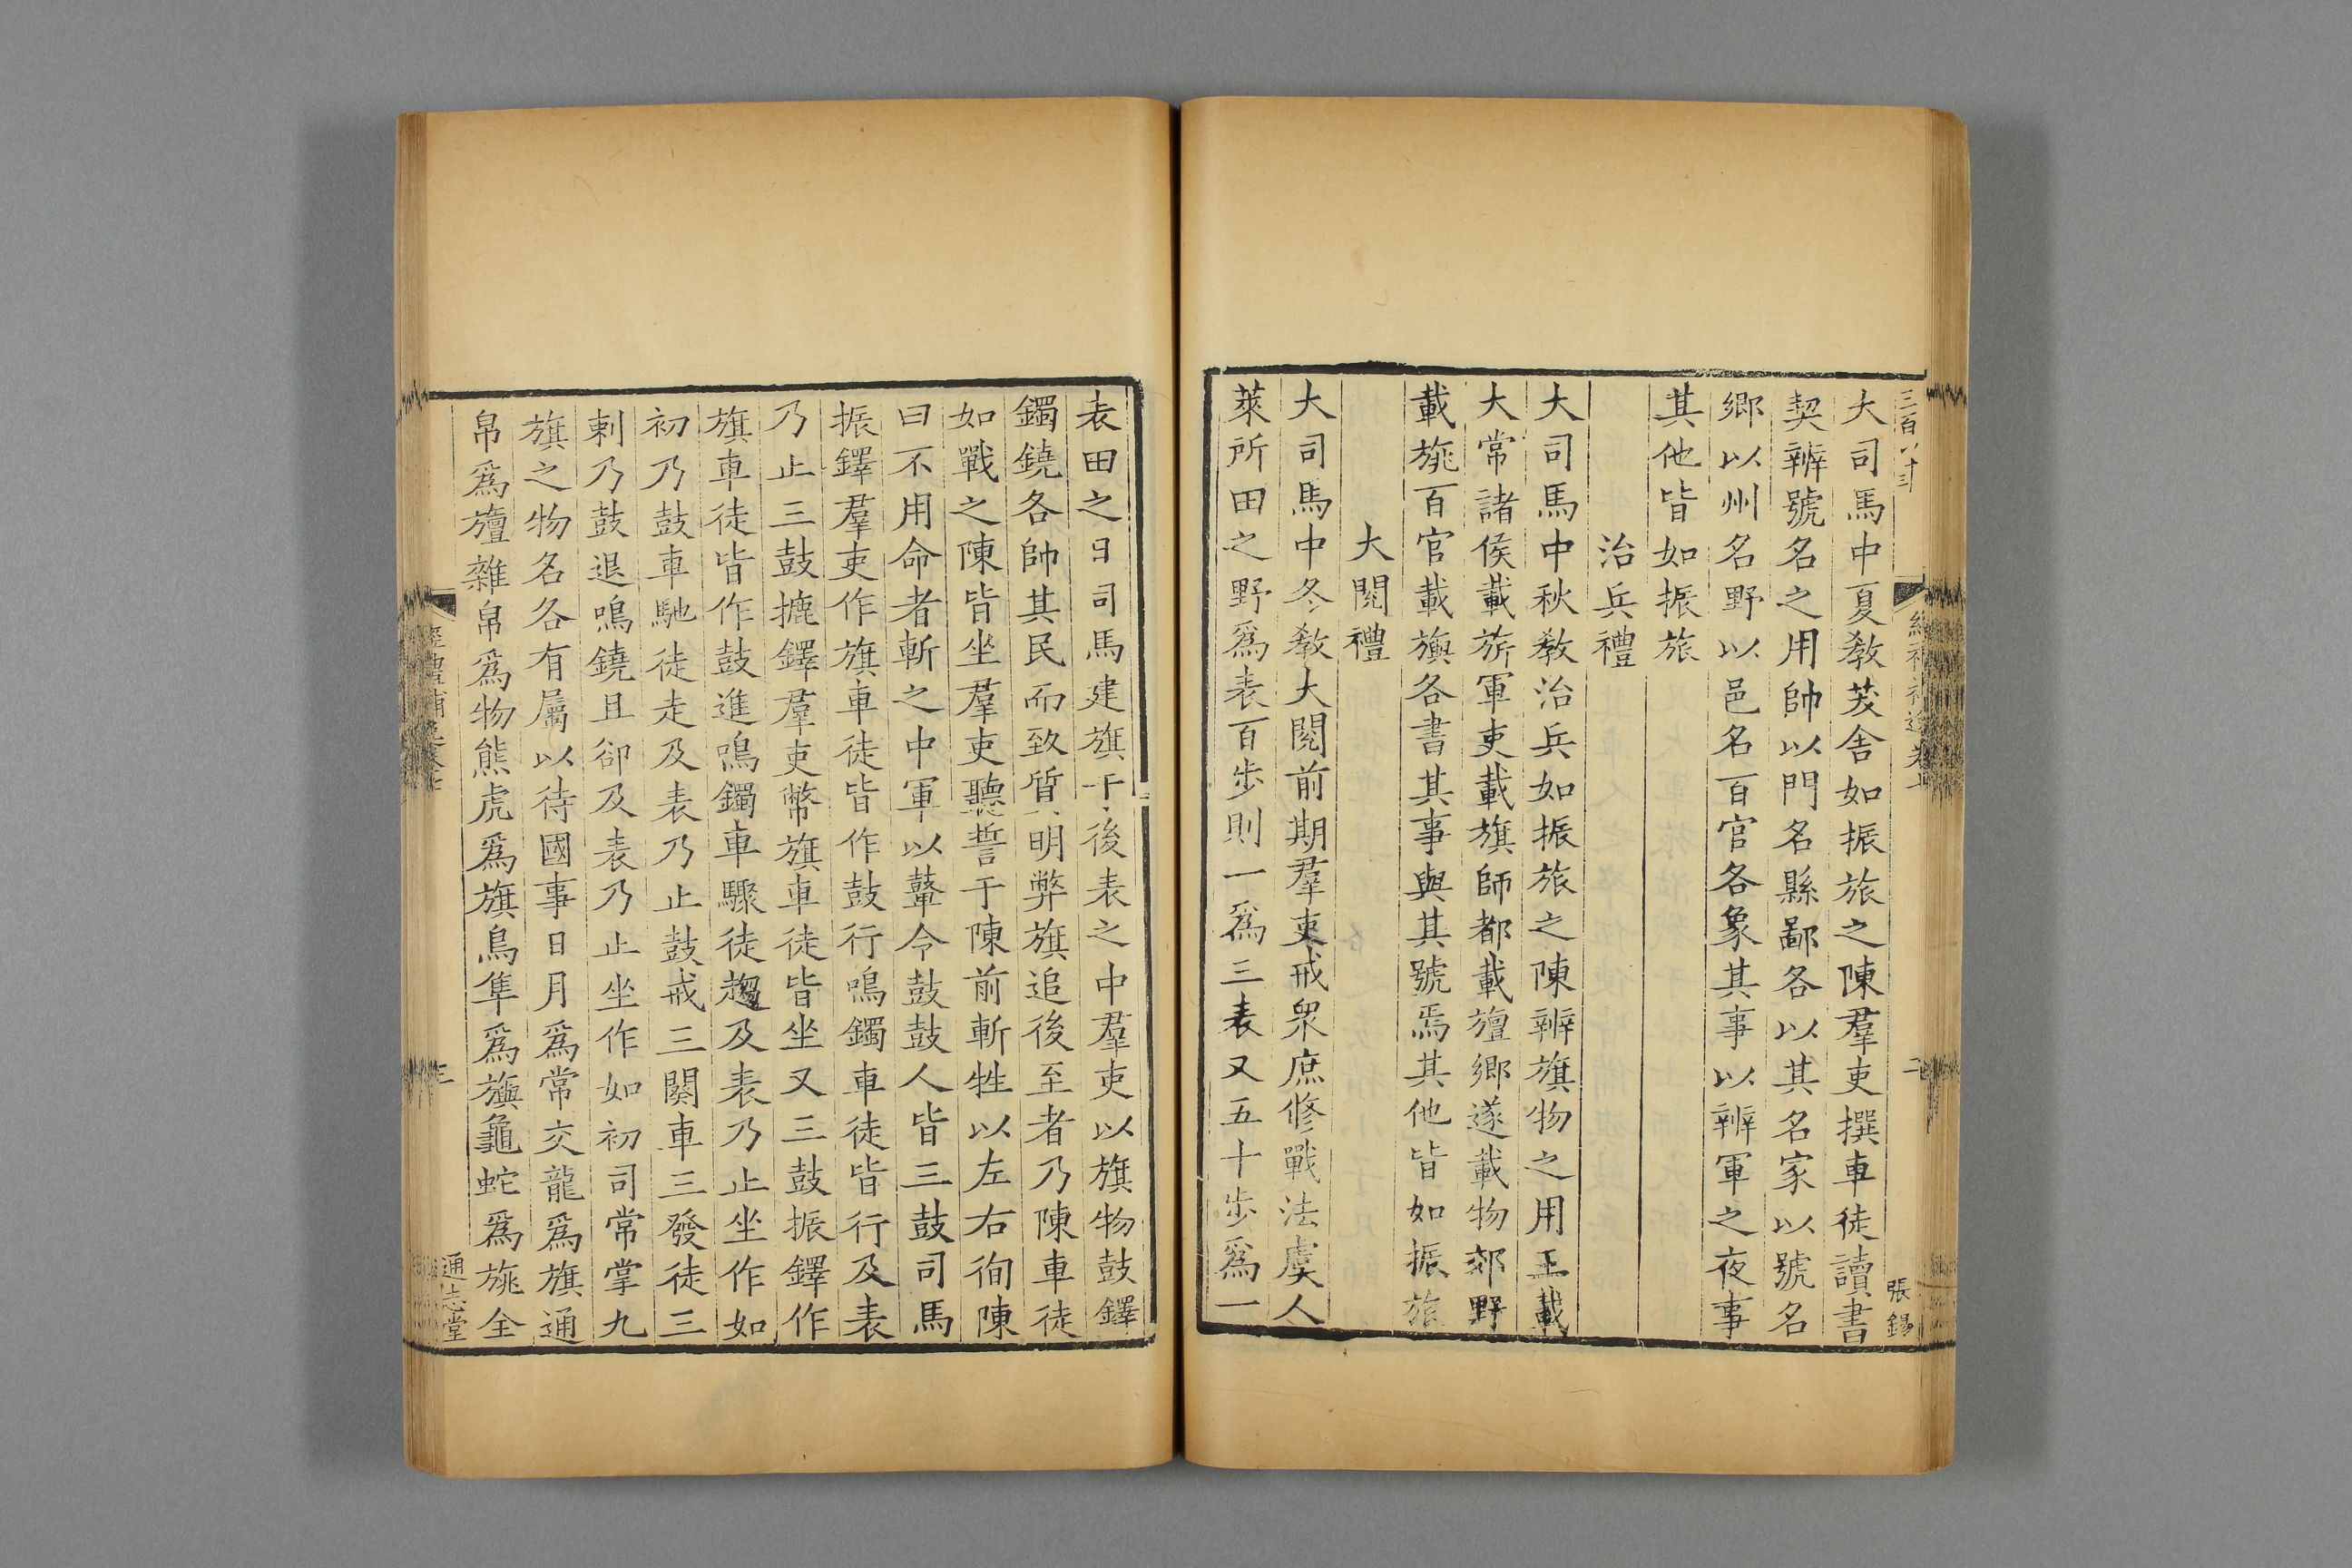 大司馬中夏教茇舍如振旅之陳羣吏撰車徒讀書
契辨號名之用帥以門名縣鄙各以其名家以號名
鄉以州名野以邑名百官各象其事以辨軍之夜事
其他皆如振旅
治兵禮
大司馬中秋教治兵如振旅之陳辨旗物之用王載
大常諸侯載旂軍吏載旗師都載旜鄉遂載物郊野
載旐百官載旟各書其事與其號焉其他皆如振旅
大閱禮
大司馬中冬教大閱前期羣吏戒衆庶修戰法虞人
萊所田之野爲表百步則一爲三表又五十步爲一
張錫
二
表田之日司馬建旗于後表之中羣吏以旗物鼓鐸
鐲鐃各帥其民而致質明弊旗追後至者乃陳車徒
如戰之陳皆坐羣吏聽誓于陳前斬牲以左右徇陳
曰不用命者斬之中軍以鼙令鼓鼓人皆三鼓司馬
振鐸羣吏作旗車徒皆作鼓行鳴鐲車徒皆行及表
乃止三鼓摝鐸羣吏幣旗車徒皆坐又三鼓振鐸作
旗車徒皆作鼓進鳴鐲車驟徒趨及表乃止坐作如
初乃鼓車馳徒走及表乃止鼓戒三闋車三發徒三
刺乃鼓退鳴鐃且卻及表乃止坐作如初司常掌九
旗之物名各有屬以待國事日月爲常交龍爲旗通
帛爲旜雜帛爲物熊虎爲旗鳥隼爲旟龜蛇爲旐全
通志堂